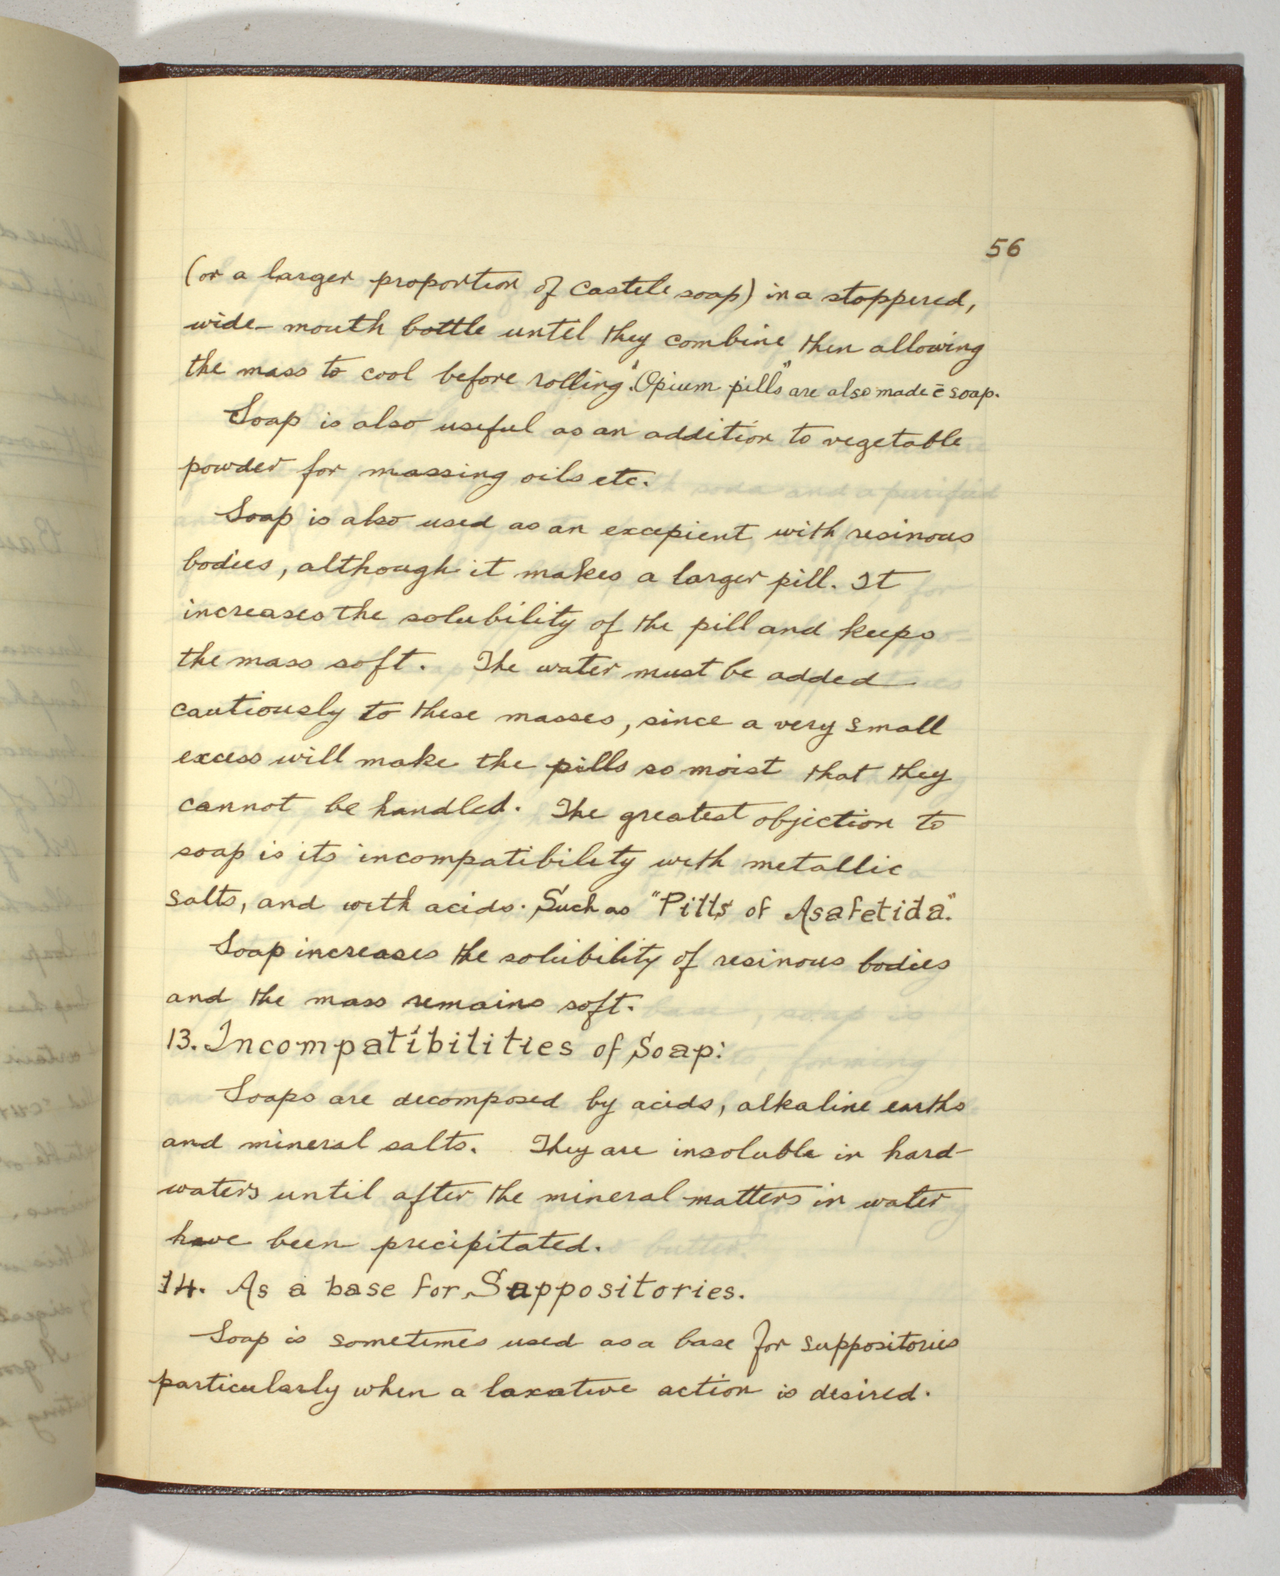 56
(or a larger proportion of castile soap) in a stoppered,
wide-mouth bottle until they combine then allowing
the mass to cool before rolling. "Opium pills" are also made c̄ soap.
Soap is also useful as an addition to vegetable
powder for massing oils etc.
Soap is also used as an excepient with resinous
bodies, although it makes a larger pill. It
increases the solubility of the pill and keeps
the mass soft. The water must be added
cautiously to these masses, since a very small
excess will make the pills so moist that they
cannot be handled. The greatest objection to
soap is its incompatibility with metallic
salts, and with acids. Such as "Pills of Asafetida".
Soap increases the solubility of resinous bodies
and the mass remains soft.
13. Incompatibilities of Soap:
Soaps are decomposed by acids, alkaline earths
and mineral salts. They are insoluble in hard
waters until after the mineral matters in water
have been precipitated.
14. As a base for Suppositories.
Soap is sometimes used as a base for suppositories
particularly when a laxative action is desired.